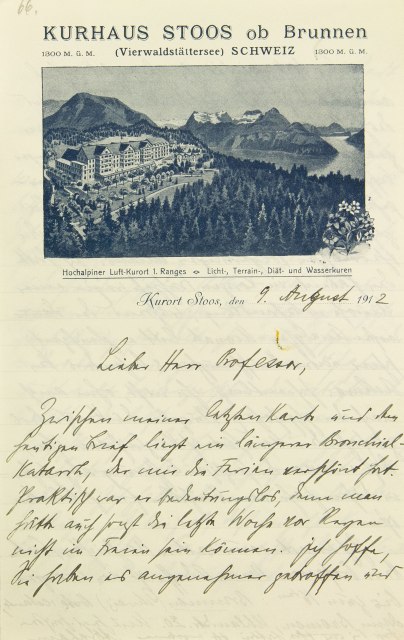 66.
KURHAUS STOOS ob Brunnen
1300 M. ü. M. (Vierwaldstättersee) SCHWEIZ 1300 M. ü. M.
Hochalpiner Luft-Kurort 1. Ranges Licht-, Terrain-, Diät- und Wasserkuren
Kurort Stoos, den 9. August 1912
Lieber Herr Professor,
Zwischen meiner letzten Karte und dem
heutigen Brief liegt ein längerer Bronchial-
katarrh, der mir die Ferien zerstört hat.
Praktisch war es bedeutungslos, denn man
hätte auch sonst die letzte Woche vor Regen
nicht im Freien sein können. Ich hoffe,
Sie haben es angenehmer getroffen und